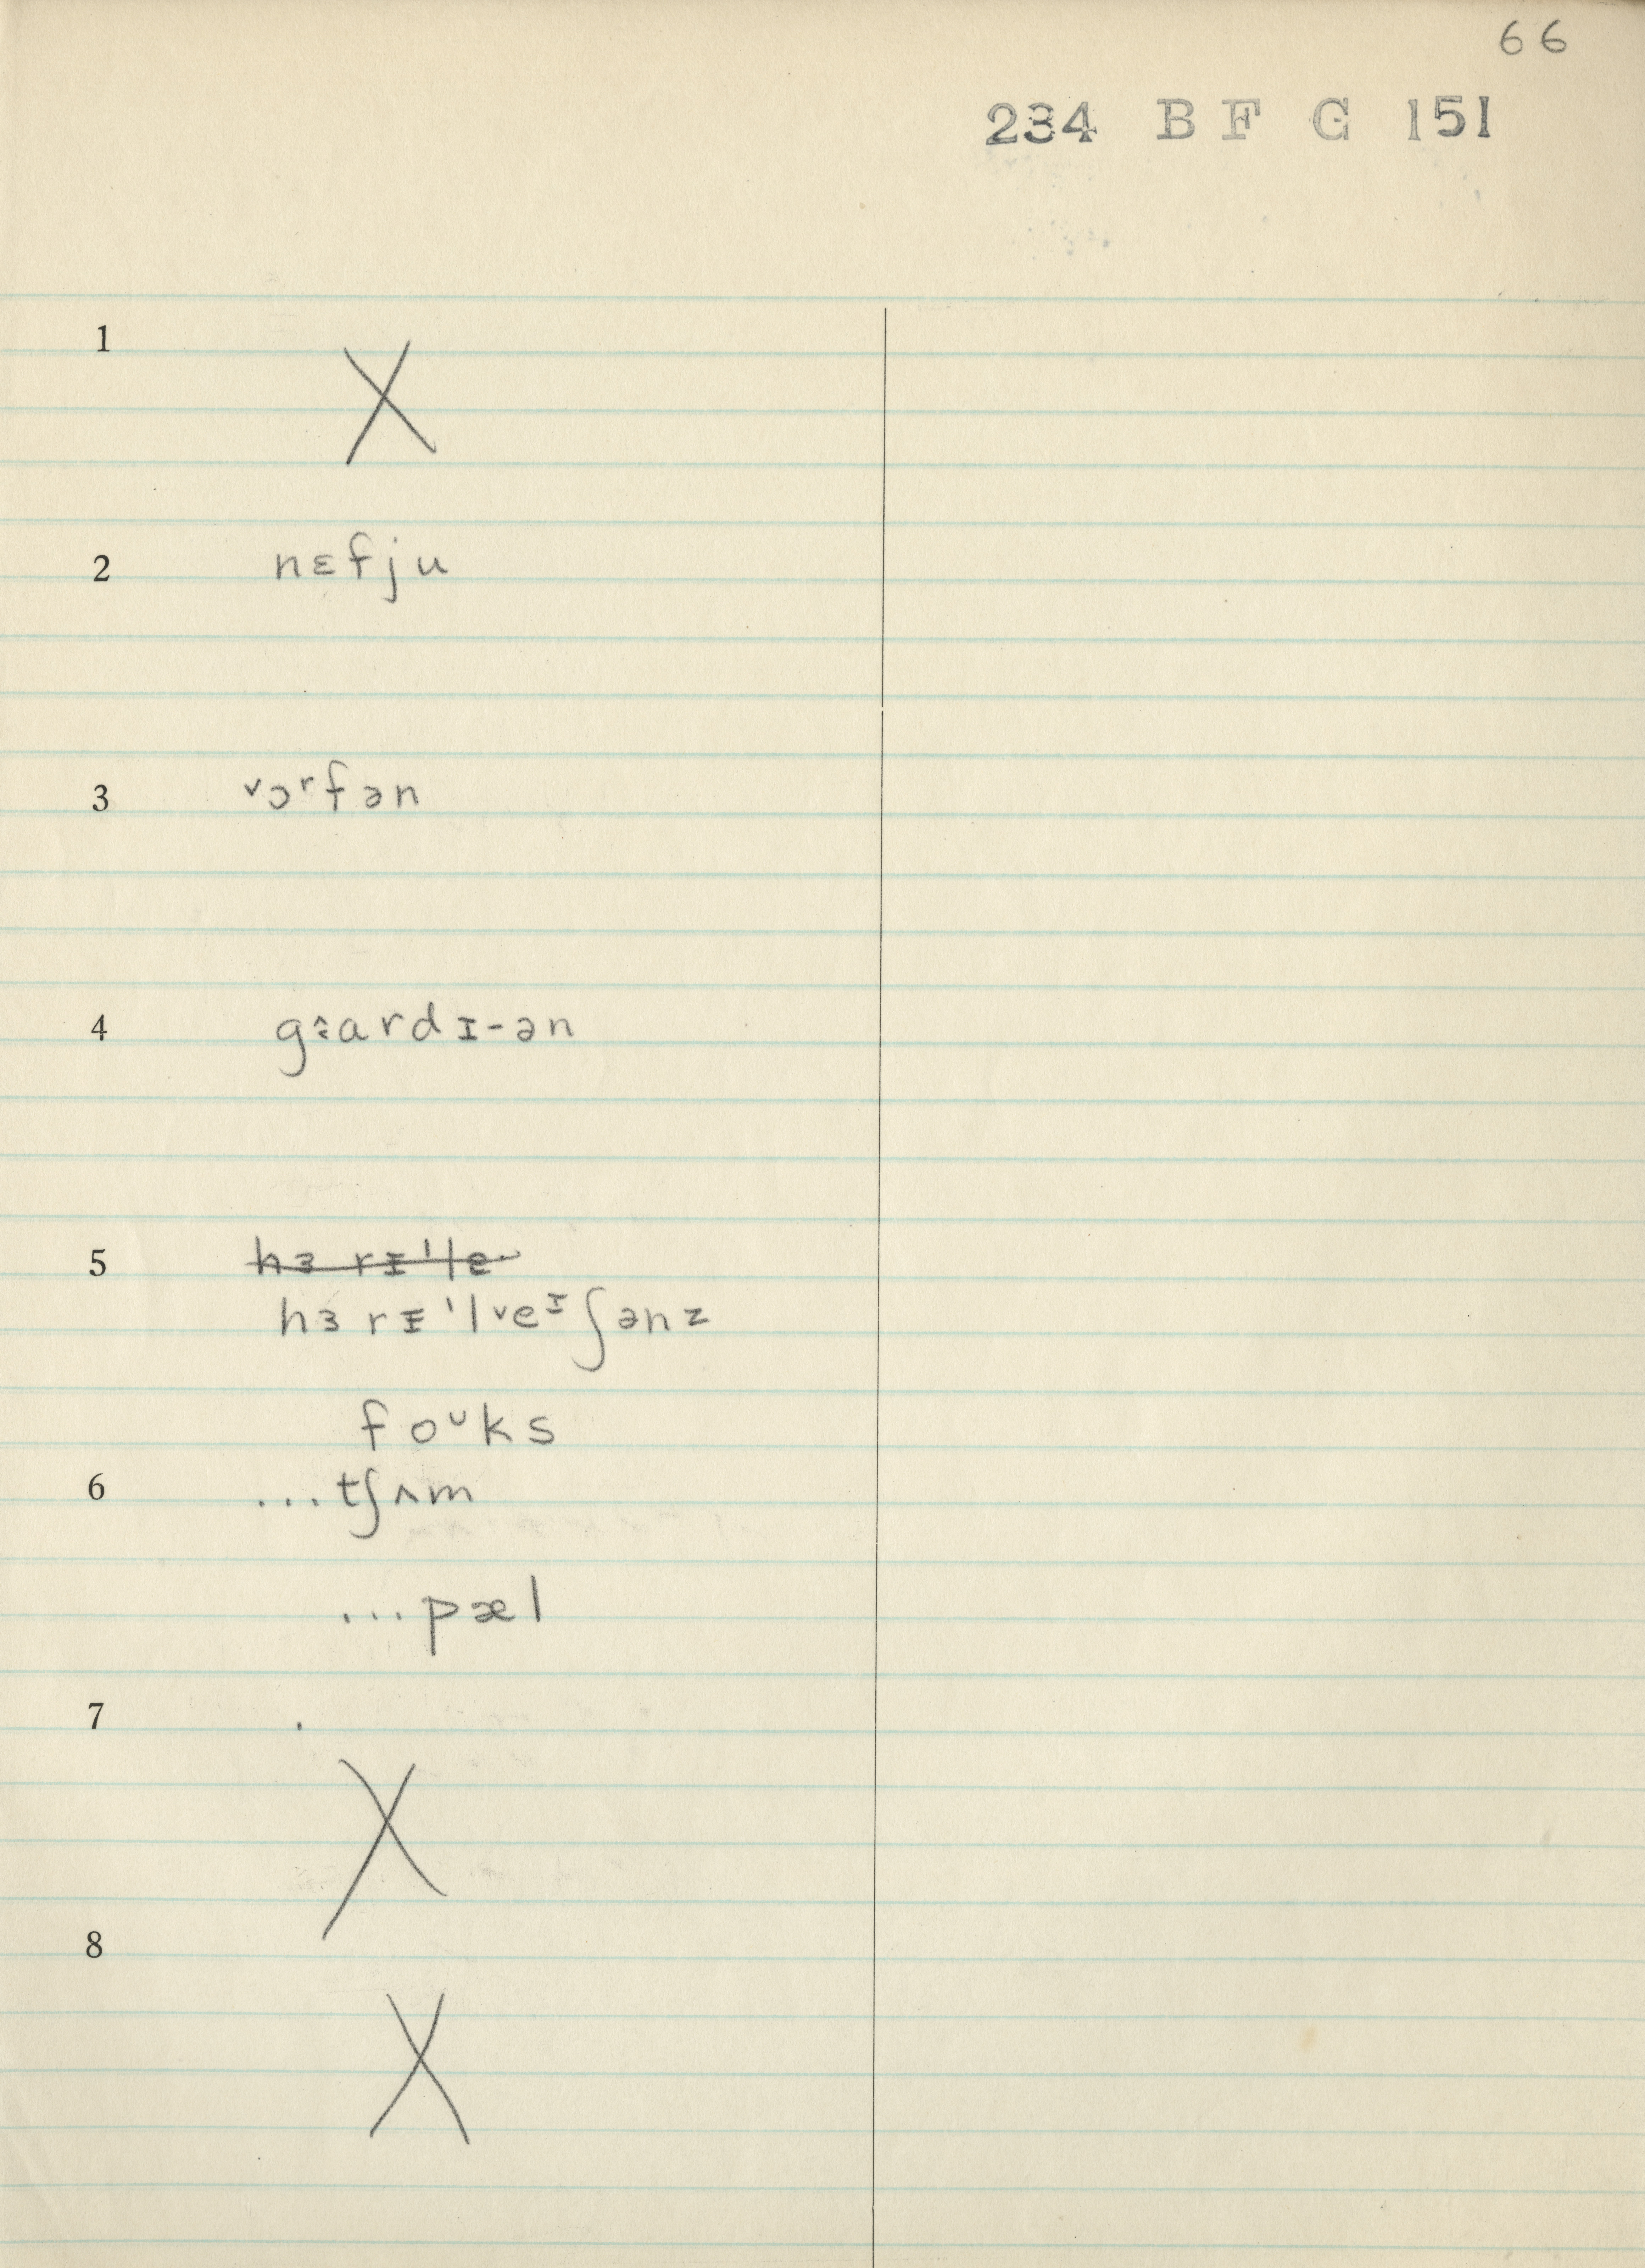 66
234 B F G 151
1 X
2 nɛfju
3 ˅ɔʳfən
4 gɜ̂ardɪ-ən
5 hɜ rɪ'le
hɜ rɪ̵'l˅eᶦʃənz
foᶸks
6 ...tʃʌm
...pæl
7 X
8 X